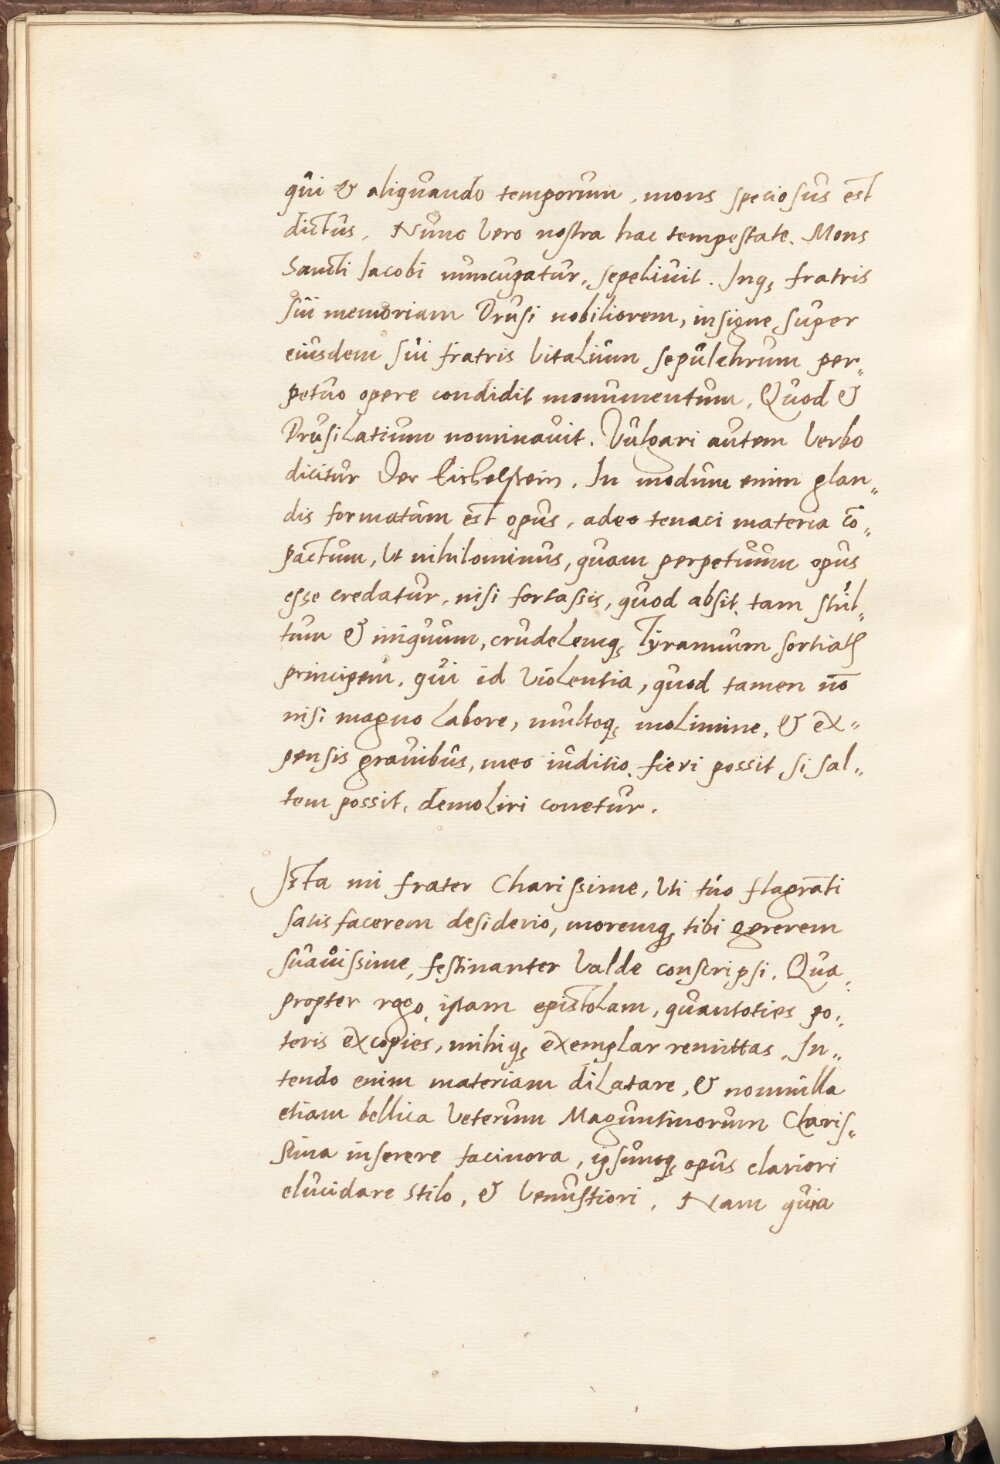 qui & aliquando temporum, mons speciosus est
dictus. Nunc vero nostra hac tempestate. Mons
Sancti Iacobi nuncupatur, sepelivit. Inq; fratris
sui memoriam Drusi nobiliorem, insigne super
eiusdem sui fratris Vitalium sepulchrum per„
petuo opere condidit monumentum. Quod &
Drusilatium nominavit. Vulgari autem verbo
dicitur Der Eichelstein. In modum enim glan„
dis formatum est opus, adeo tenaci materia cō„
pactum, ut nihilominus, quam perpetuum opus
esse credatur, nisi fortassis, quod absit, tam stul„
tum & iniquum, crudelemq; Tyrannum sortiatꝭ
principem, qui id violentia, quod tamen nō
nisi magno labore, multoq; molimine, & ex„
pensis gravibus, meo iuditio, fieri possit, si sal„
tem possit, demoliri conetur.
Ista mi frater Charissime, uti tuo flagrāti
satis facerem desiderio, moremq; tibi gererem
suavissime, festinanter valde conscripsi. Qua„
propter rogo, istam epistolam, quantoties po„
teris excopies, mihiq; exemplar remittas. In„
tendo enim materiam dilatare, & nonnulla
etiam bellica veterum Maguntinorum Claris„
sima inserere facinora, ipsumq; opus clariori
elucidare stilo, & venustiori. Nam quia